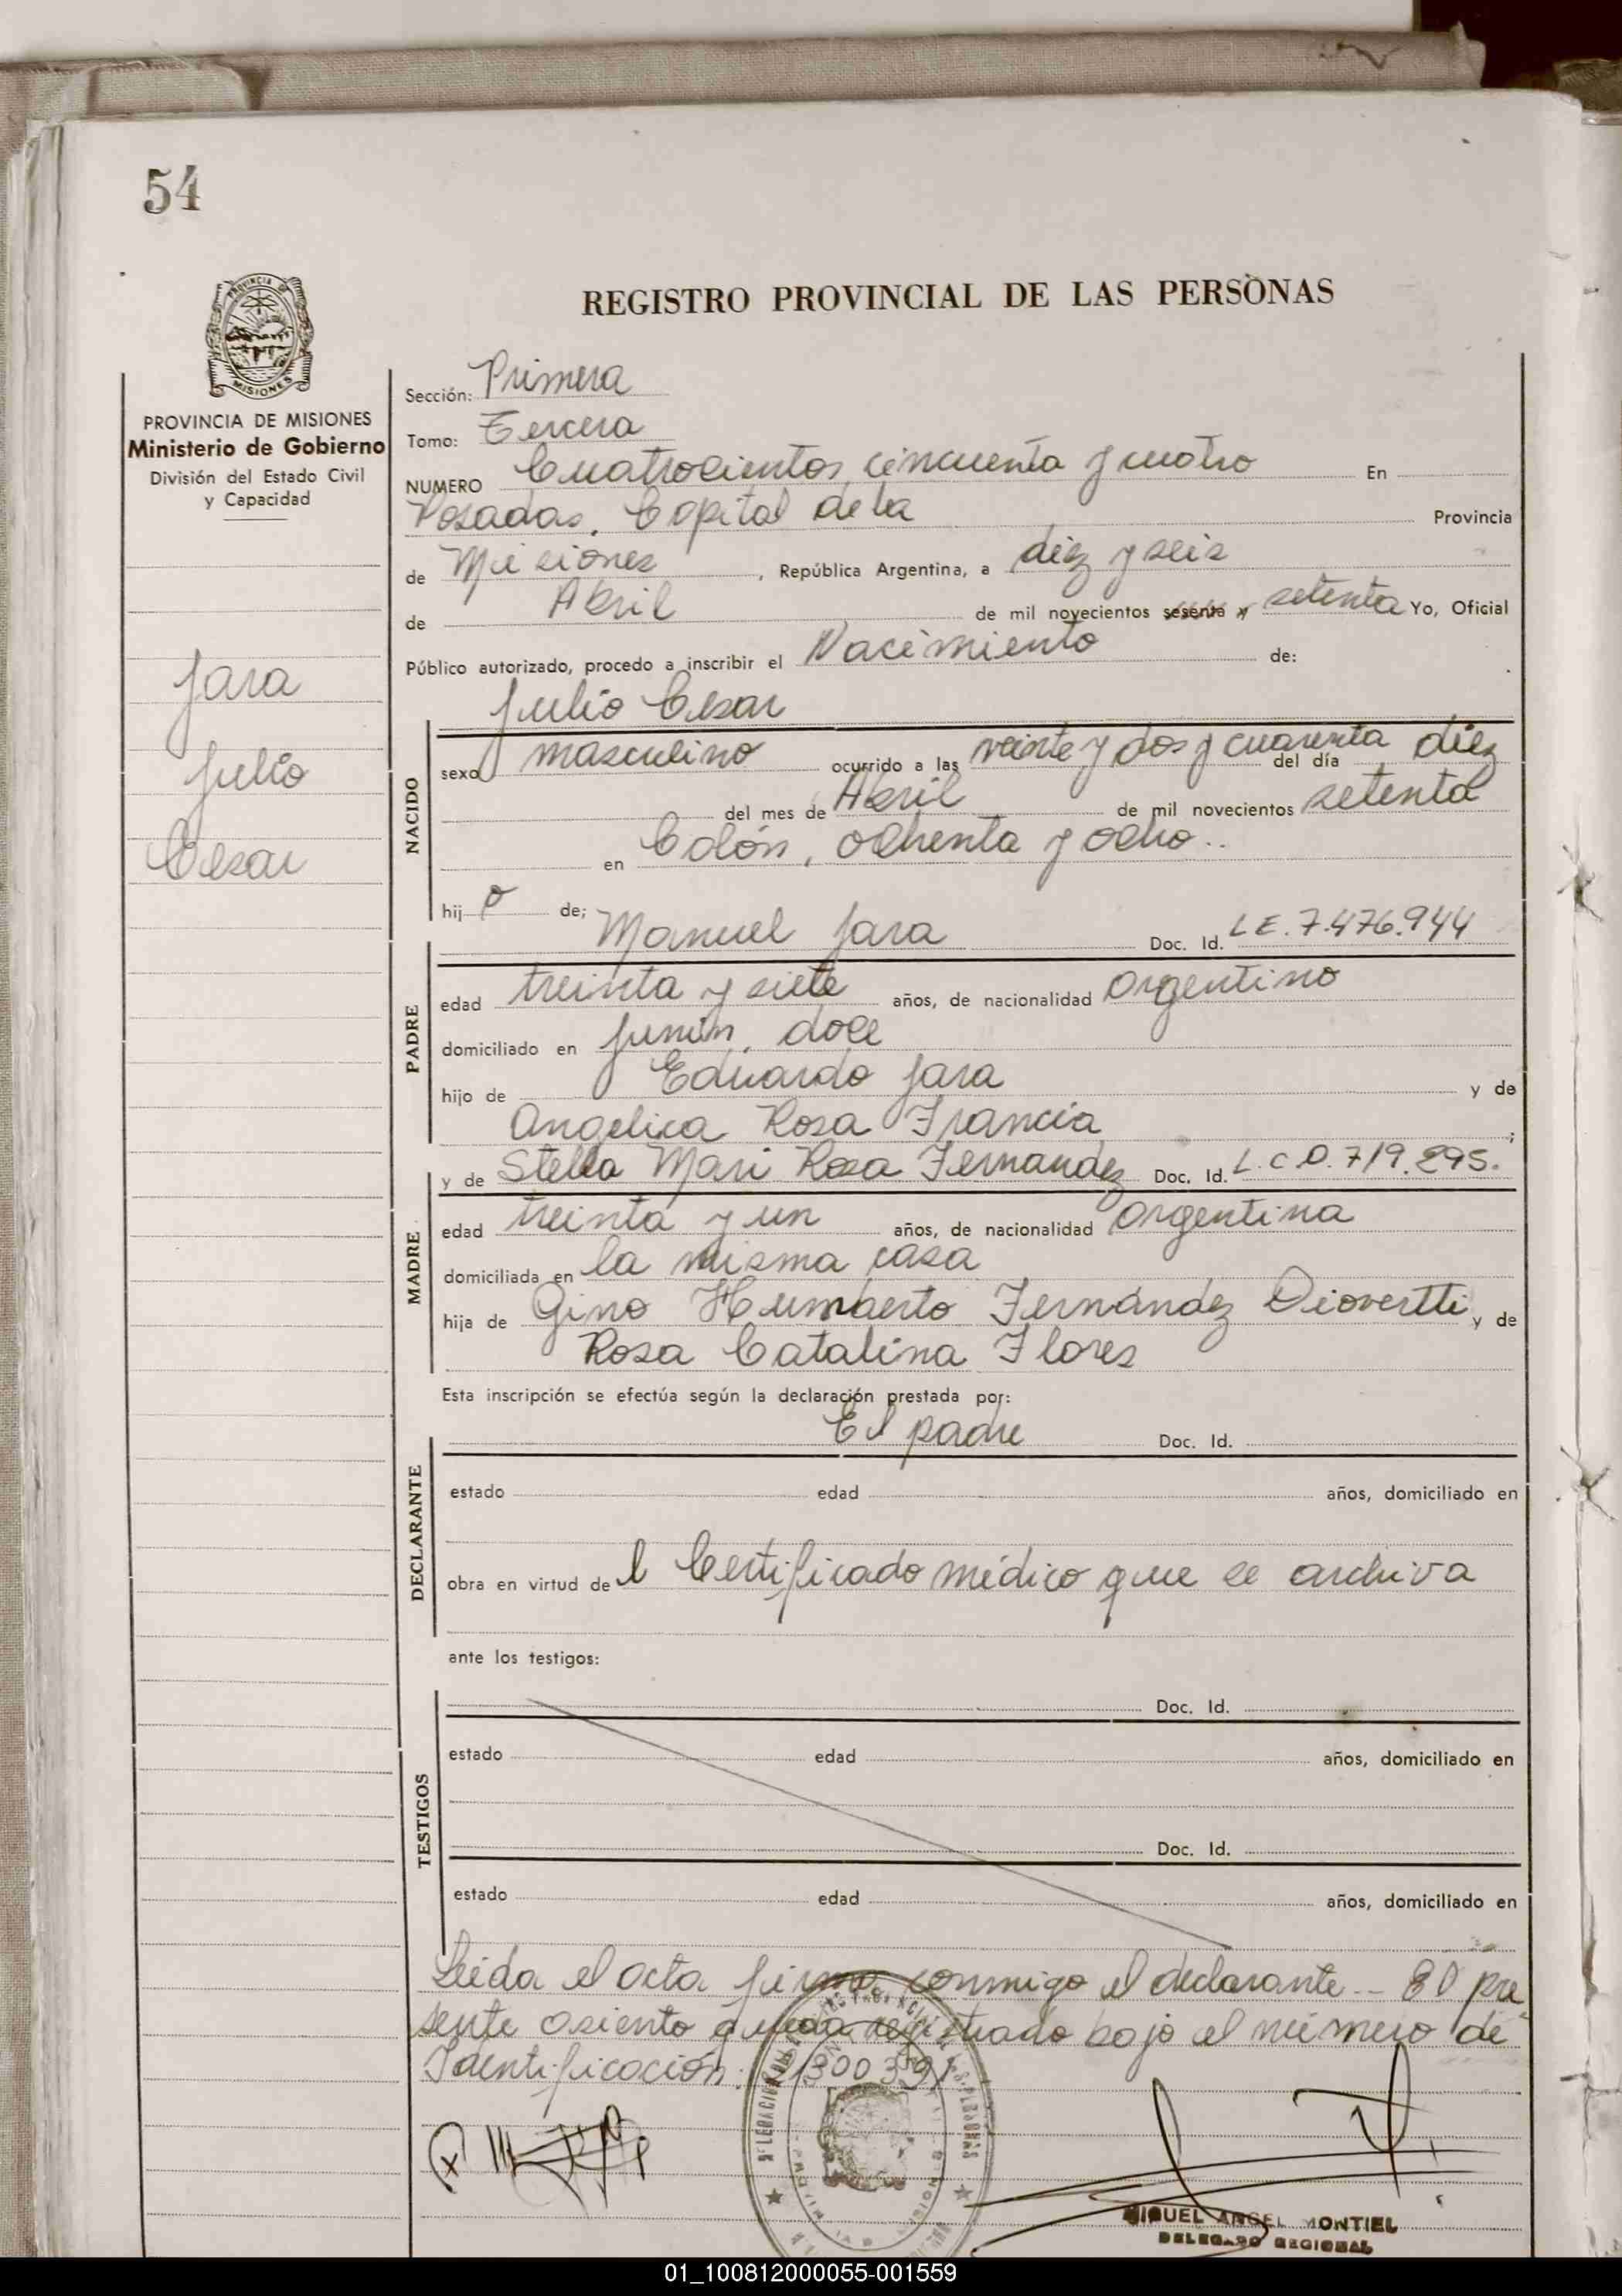 54
REGISTRO PROVINCIAL DE LAS PERSONAS
PROVINCIA DE
MISIONES
PROVINCIA DE MISIONES
Ministerio de Gobierno
División del Estado Civil
y Capacidad
Jara
Julio
Cesar
Sección: Primera
Tomo: Tercera
NUMERO Cuatrocientos cincuenta y cuatro En
Posadas, Capital de la Provincia
de Misiones, República Argentina, a diez y seis
de Abril de mil novecientos sesenta y setenta Yo, Oficial
Público autorizado, procedo a inscribir el Nacimiento de:
Julio Cesar
NACIDO
sexo masculino ocurrido a las veinte y dos y cuarenta del día diez
del mes de Abril de mil novecientos setenta
en Colón, ochenta y ocho..
hijo de; Manuel Jara Doc. Id. L E. 7.476.944
PADRE
edad treinta y siete años, de nacionalidad argentino
domiciliado en Junín, doce
hijo de Eduardo Jara y de
Angelica Rosa Francia;
y de Stella Mari Rosa Fernandez Doc. Id. L. C 0.719.295.
MADRE
edad treinta y un años, de nacionalidad argentina
domiciliada en la misma casa
hija de Gino Humberto Fernández y de
Rosa Catalina Flores
Esta inscripción se efectúa según la declaración prestada por:
El padre Doc. Id.
DECLARANTE
estado edad años, domiciliado en
obra en virtud del Certificado médico que se archiva
ante los testigos:
Doc. Id.
TESTIGOS
estado edad años, domiciliado en
Doc. Id.
estado edad años, domiciliado en
Leida el acta firma conmigo el declarante.- El pre
sente asiento queda registrado bajo el número de
Identificación:
MIGUEL ANGEL MONTIEL
DELEGADO REGIONAL
01_100812000055-001559